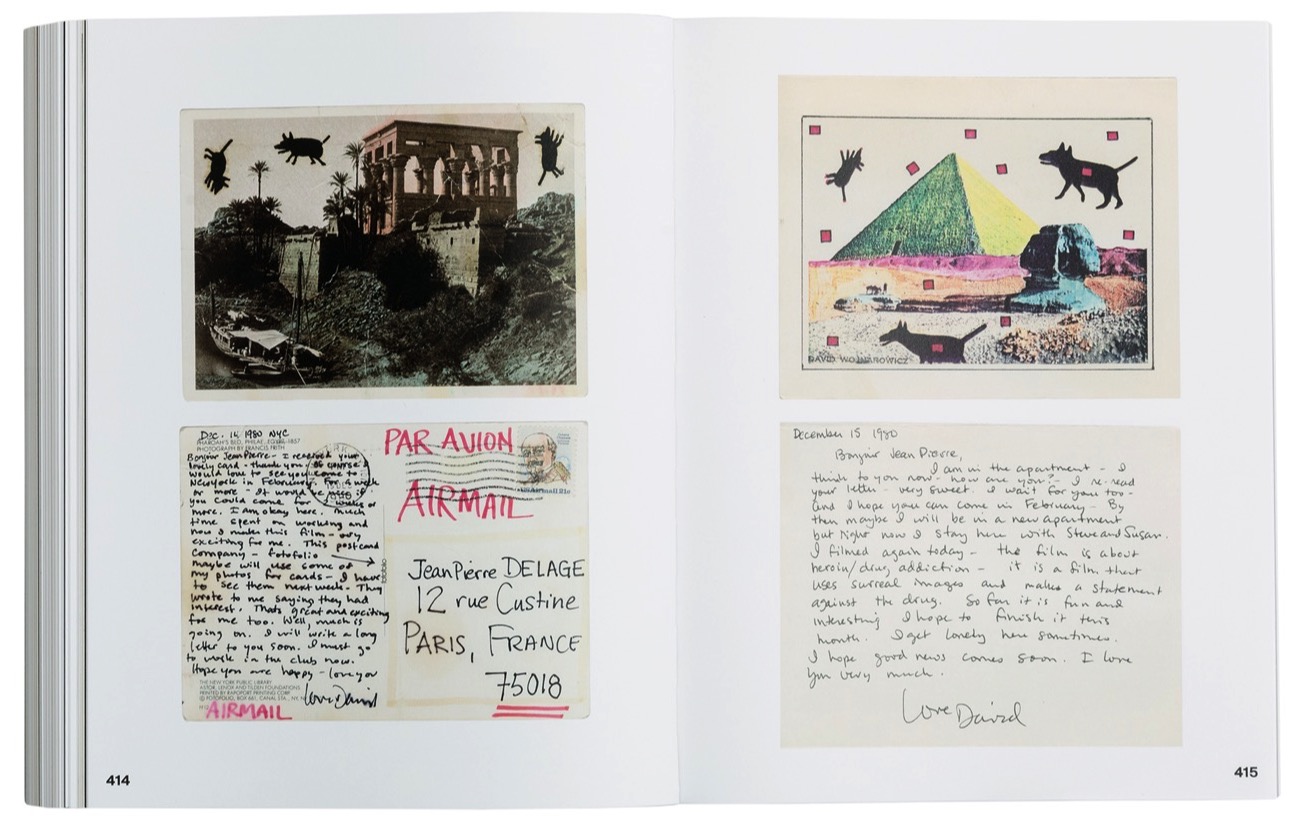 Dec. 14 1980 NYC
PHAROAH'S BED, PHILAE, EGYPT - 1857
PHOTOGRAPH BY FRANCIS FRITH
Bonjour Jean Pierre - I received your
lovely card - thank you - Of course I
would love to see you come to
New York in February. For a week
or more. It would be nice if
you could come for 2 weeks or
more. I am okay here. Much
time spent on working and
now I make this film - very
exciting for me. This postcard
company - fotofolio
maybe will use some of
my photos for cards - I have
to see them next week - They
wrote to me saying they had
interest. Thats great and exciting
for me too. Well, much is
going on. I will write a long
letter to you soon. I must go
to work in the club now.
Hope you are happy - love you
THE NEW YORK PUBLIC LIBRARY
ASTOR, LENOX AND TILDEN FOUNDATIONS
PRINTED BY RAPOPORT PRINTING CORP.
© FOTOFOLIO, BOX 661, CANAL STA., NY, N
Love David
AIRMAIL
PAR AVION
USAirmail 21c
AIRMAIL
Jean Pierre DELAGE
12 rue Custine
PARIS, FRANCE
75018
414
DAVID WOJNAROWICZ
December 15 1980
Bonjour Jean Pierre,
I am in the apartment - I
think to you now - how are you? - I re-read
your letter - very sweet. I wait for you too -
and I hope you can come in February - By
then maybe I will be in a new apartment
but right now I stay here with Steve and Susan.
I filmed again today - the film is about
heroin/drug addiction - it is a film that
uses surreal images and makes a statement
against the drug. So far it is fun and
interesting I hope to finish it this
month. I get lonely here sometimes.
I hope good news comes soon. I love
you very much.
Love David
415